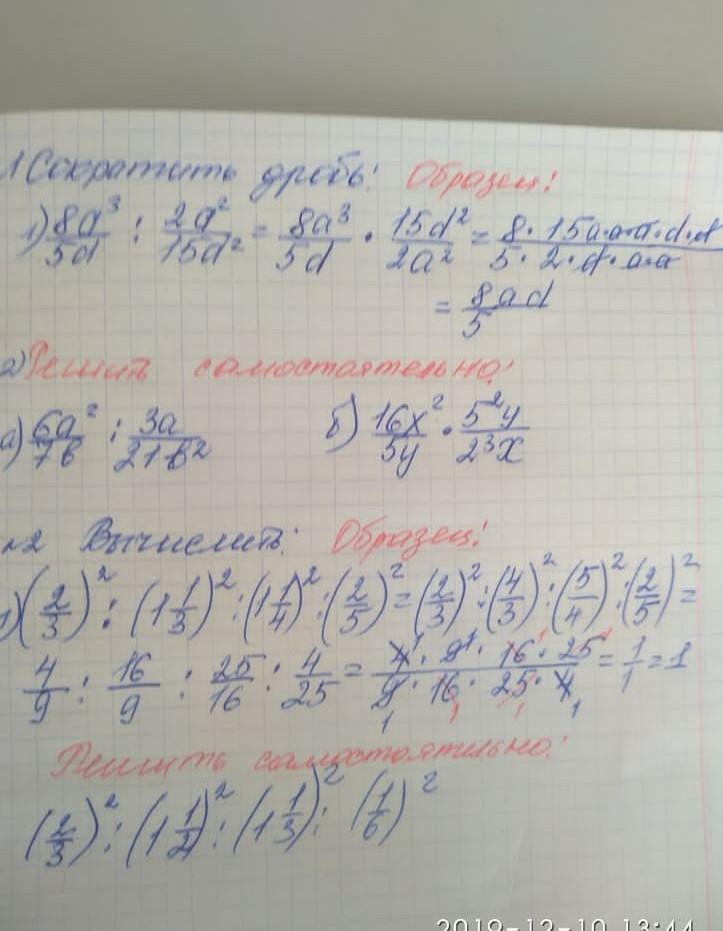 1 Сократить дробь: Образец:
1) 8a³/5d : 2a²/15d² = 8a³/5d · 15d²/2a² = 8·15a·a·a·d·d/5·2·d·a·a
= 8ad/5
2) Решить самостоятельно:
а) 6a²/7b : 3a/21b² б) 16x²/5y · 5²y/2³x
№2 Вычислить: Образец:
1) (2/3)² : (1 1/3)² : (1 1/4)² : (2/5)² = (2/3)² : (4/3)² : (5/4)² : (2/5)² =
4/9 : 16/9 : 25/16 : 4/25 = 4·9·16·25/9·16·25·4 = 1/1 = 1
Решить самостоятельно:
(2/3)² : (1 1/2)² : (1 1/3)² : (1/6)²
2019-12-10 13:44